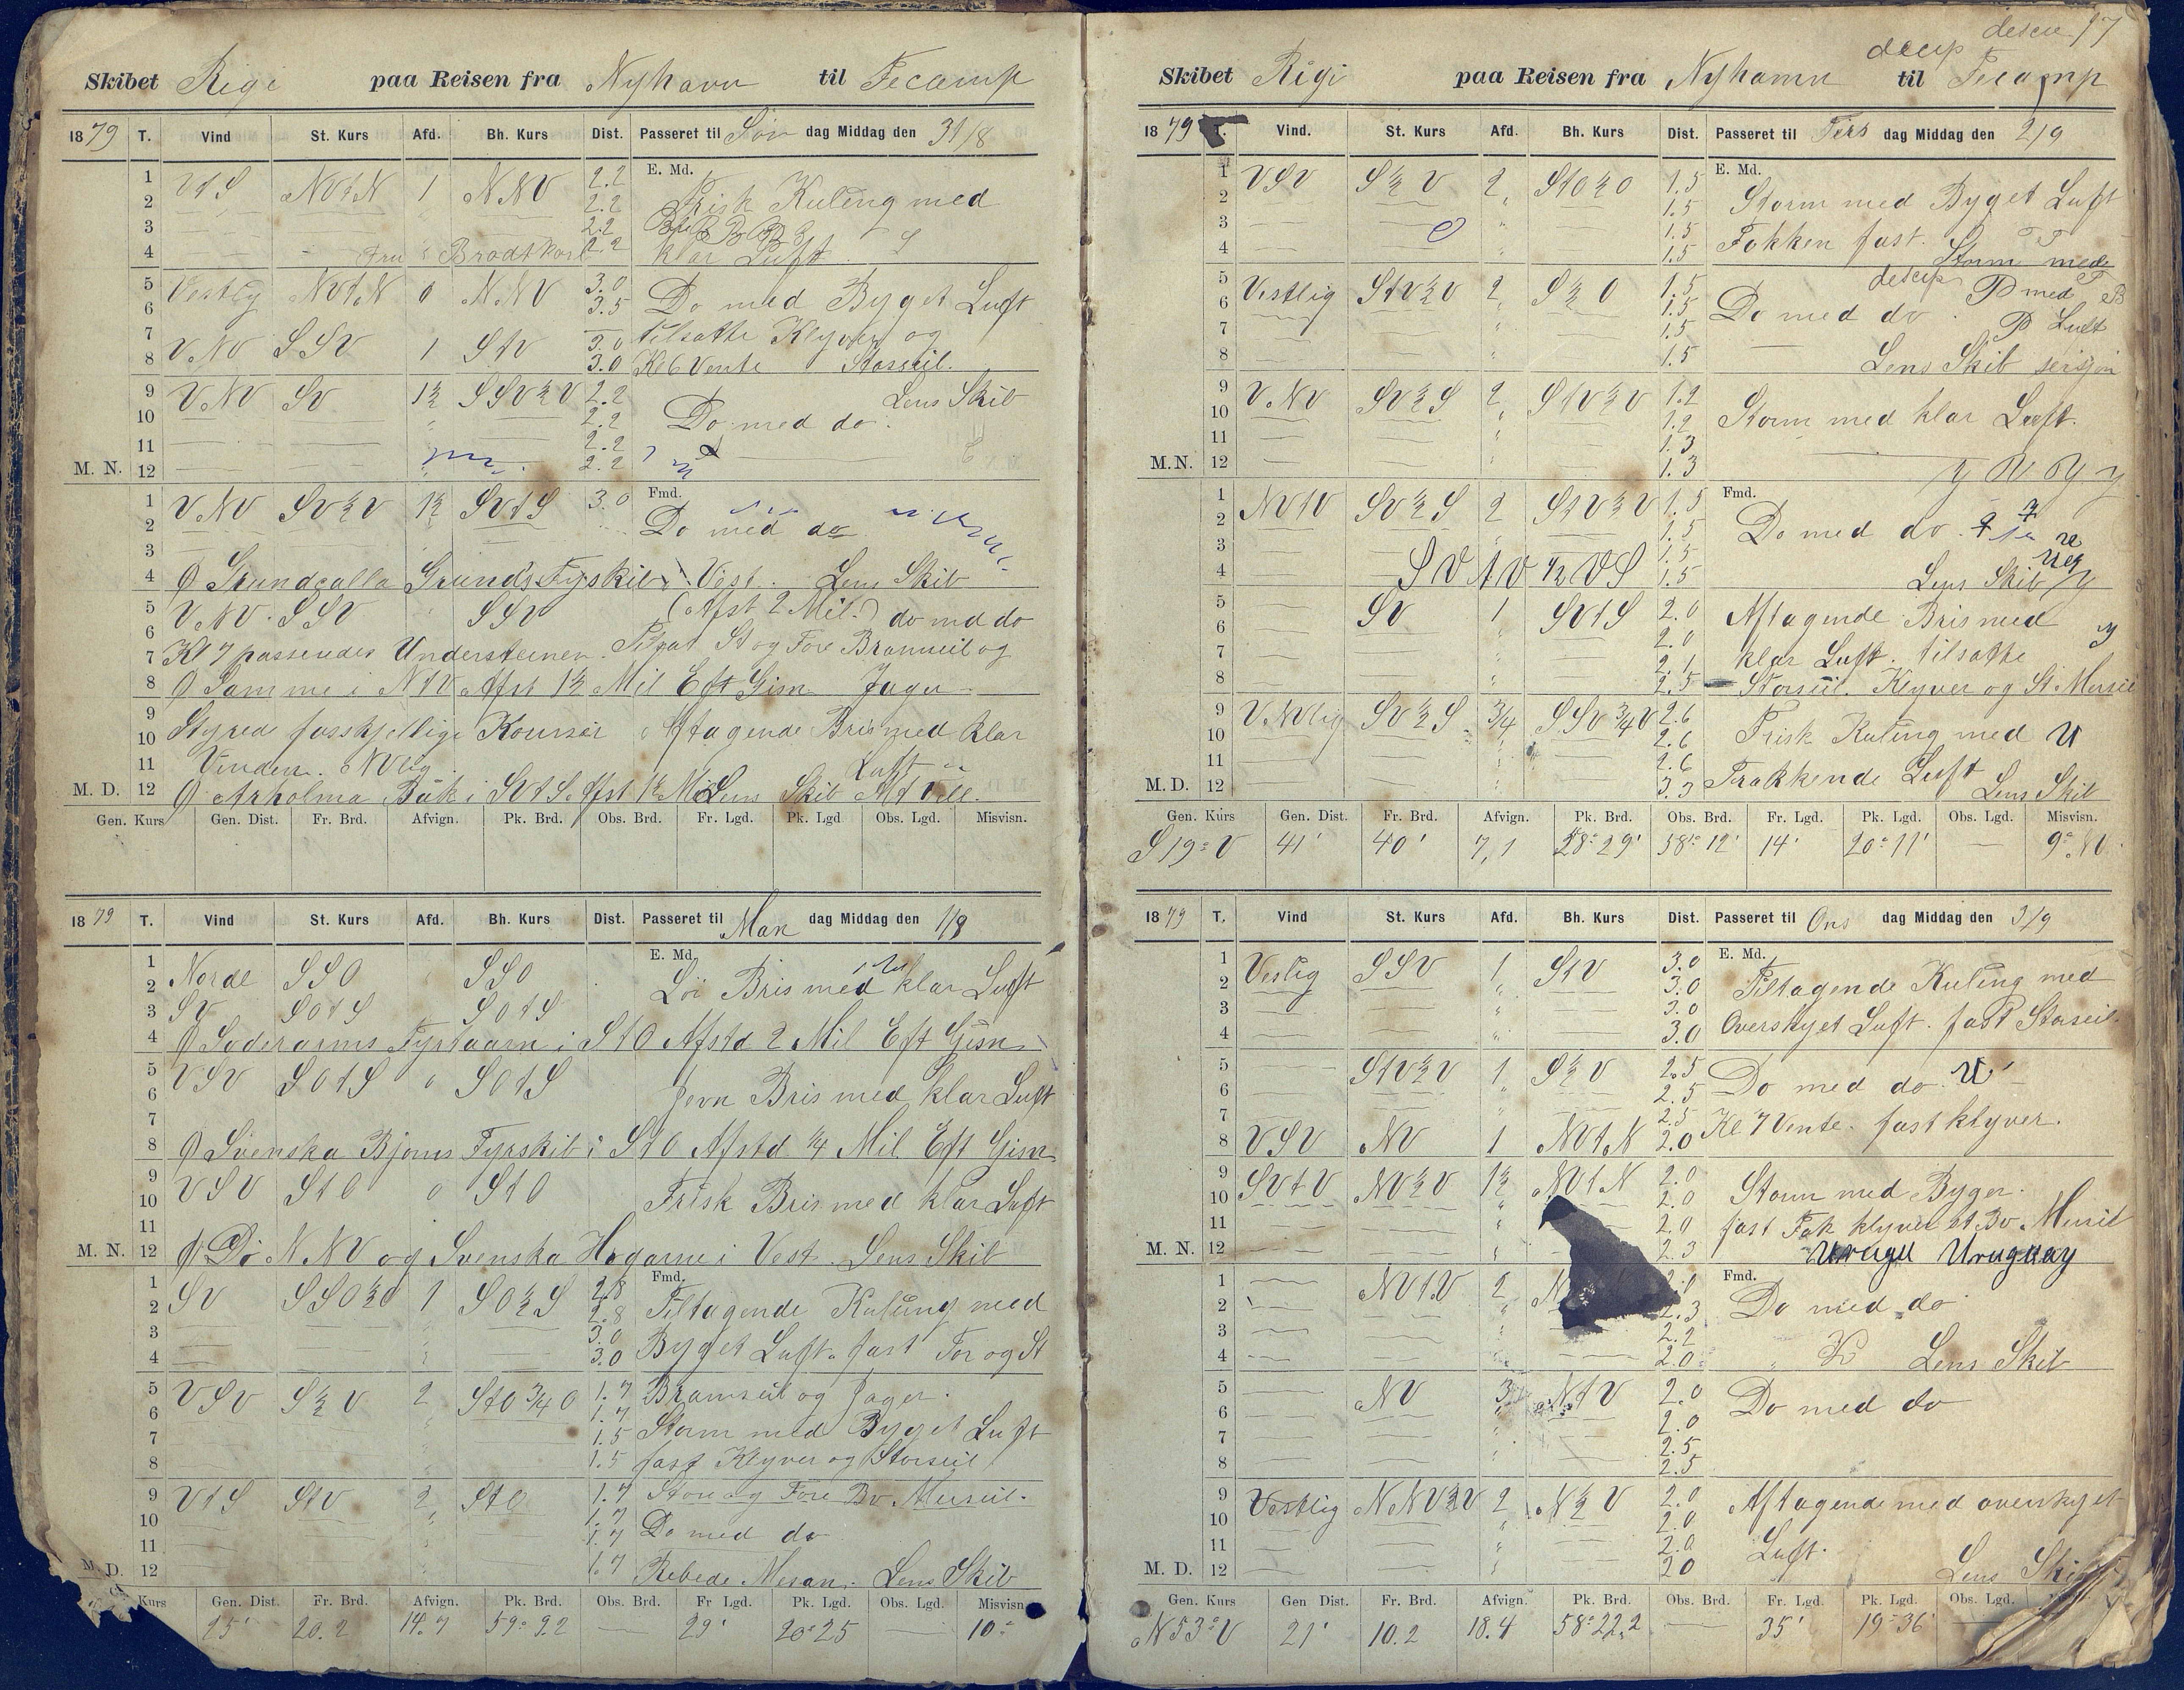 Skibet Rigi paa Reisen fra Nyhavn til Fecamp
1879 T. Vind St. Kurs Afd. Bh. Kurs Dist. Passeret til Søn dag Middag den 31/8
1 VtS NVtN 1 NNV 2.2 E. Md.
2 2.2 Frisk Kuling med
3 2.2
4 Fru Brodtkorb 2.2 klar Luft.
5 Vestlig NVtN 0 NNV 3.0
6 3.5 Do med Byget Luft
7 VNV SSV 1 StV 3.0 tilsatte Klyver og
8 3.0 Kl 6 Vente Storseil.
9 VNV SV 1½ SSV½V 2.2 Lens Skib
10 2.2 Do med do.
11 2.2
M. N. 12 2.2
1 VNV SV½V 1½ SVtS 3.0 Fmd.
2 Do med do
3
4 Grundcalla Grunds Fyrskib i Vest. Lens Skib
5 VNV. SSV SSV (Afst 2 Mil.) do md do
6
7 Kl 7 passeredes Understeenen. St og Fore Bramseil og
8 Samme i NtV Afst 1½ Mil Eft Gisn Jager
9 Styred forskjellige Kourser Aftagende Bris med klar
10
11 Vinden. NVlig. Luft
M. D. 12 Arholma Båk i SVtS. Afst 1½ Mil Lens Skib
Gen. Kurs Gen. Dist. Fr. Brd. Afvign. Pk. Brd. Obs. Brd. Fr. Lgd. Pk. Lgd Obs. Lgd. Misvisn.
1879 T. Vind St. Kurs Afd. Bh. Kurs Dist. Passeret til Man dag Middag den 1/9
1 E. Md.
2 Norde SSO SSO Löi Bris med klar Luft
3 SV SOtS SOtS
4 Soderarms Fyrtaarn i StO Afstd 2 Mil Eft Gisn
5 VSV SOtS 0 SOtS
6 Jevn Bris med klar Luft
7
8 Svenska Bjorns Fyrskib i StO Afstd ¼ Mil Eft Gisn
9 VSV StO 0 StO
10 Frisk Bris med klar Luft
11
M. N. 12 Do NNV og Svenska Hogarne i Vest. Lens Skib
1 SV SSO½O 1 SO½S 2.8 Fmd.
2 2.8 Tiltagende Kuling med
3 3.0
4 3.0 Byget Luft. fast For og St
5 VSV S½V 2 StO¾O 1.7 Bramseil og Jager.
6 1.7
7 1.5 Storm med Byget Luft
8 1.5 fast Klyver og Storseil
9 VtS StV 2 StO 1.7 Store og Fore Bv. Merseil.
10 1.7 Do med do
11 1.7
M. D. 12 1.7 Rebede Mesan. Lens Skib
Kurs Gen. Dist. Fr. Brd. Afvign. Pk. Brd. Obs. Brd. Fr Lgd. Pk. Lgd. Obs. Lgd. Misvisn
25' 20.2 14.7 59° 9.2 — 29' 20° 25 — 10°
17
Skibet Rigi paa Reisen fra Nyhamn til Fecamp
1879 T. Vind. St. Kurs Afd. Bh. Kurs Dist. Passeret til Tirs dag Middag den 2/9
1 VSV S½V 2 StO½O 1.5 E. Md.
2 1.5 Storm med Byget Luft
3 1.5 Fokken fast.
4 1.5 Storm med
5 Vestlig StV½V 2 S½O 1.5
6 1.5 Do med do. P med
7 1.5 P Luft
8 1.5 Lens Skib
9 VNV SV½S 2 StV½V 1.2
10 1.2 Storm med klar Luft.
11 1.3
M.N. 12 1.3
1 NVtV SV½S 2 StV½V 1.5 Fmd.
2 1.5 Do med do.
3 1.5
4 SVtV ½VS 1.5 Lens Skib
5 SV 1 SVtS 2.0 Aftagende Bris med
6 2.0
7 2.1 klar Luft. tilsatte
8 2.5 Storseil. Klyver og St. Merseil
9 VNVlig SV½S ¾ SSV¾V 2.6
10 2.6 Frisk Kuling med U
11 2.6
M. D. 12 3.3 Trækkende Luft Lens Skib
Gen. Kurs Gen. Dist. Fr. Brd. Afvign. Pk. Brd. Obs. Brd. Fr. Lgd. Pk. Lgd. Obs. Lgd. Misvisn.
S19°V 41' 40' 7,1 28° 29' 58° 12' 14' 20° 11' — 9° NV
1879 T. Vind St. Kurs Afd. Bh. Kurs Dist. Passeret til Ons dag Middag den 3/9
1 Veslig SSV 1 StV 3.0 E. Md.
2 3.0 Tiltagende Kuling med
3 3.0
4 3.0 Overskyet Luft. fast Storseil.
5 StV½V 1 S½V 2.5
6 2.5 Do med do. U
7 2.5 Kl 7 Vente. fast klyver.
8 VSV NV 1 NVtN 2.0
9 SVtV NV½V 1½ NVtN 2.0
10 2.0 Storm med Byger.
11 2.0 fast Fok klyver st Bv. Mersil
M. N. 12 2.3 Urugu Uruguay
1 NVtV 2 Fmd.
2 2.3 Do med do
3 2.2
4 2.0 Lens Skib
5 NV 3 NtV 2.0
6 2.0 Do med do
7 2.5
8 2.5
9 Vestlig NNV½V 2 N½V 2.0
10 2.0 Aftagende med overskyet
11 2.0 Luft.
M. D. 12 20 Lens Skib
Gen. Kurs Gen Dist. Fr. Brd. Afvign. Pk. Brd. Obs. Brd. Fr. Lgd. Pk. Lgd. Obs. Lgd.
N53°V 21' 10.2 18.4 58° 22,2 — 35' 19° 36'